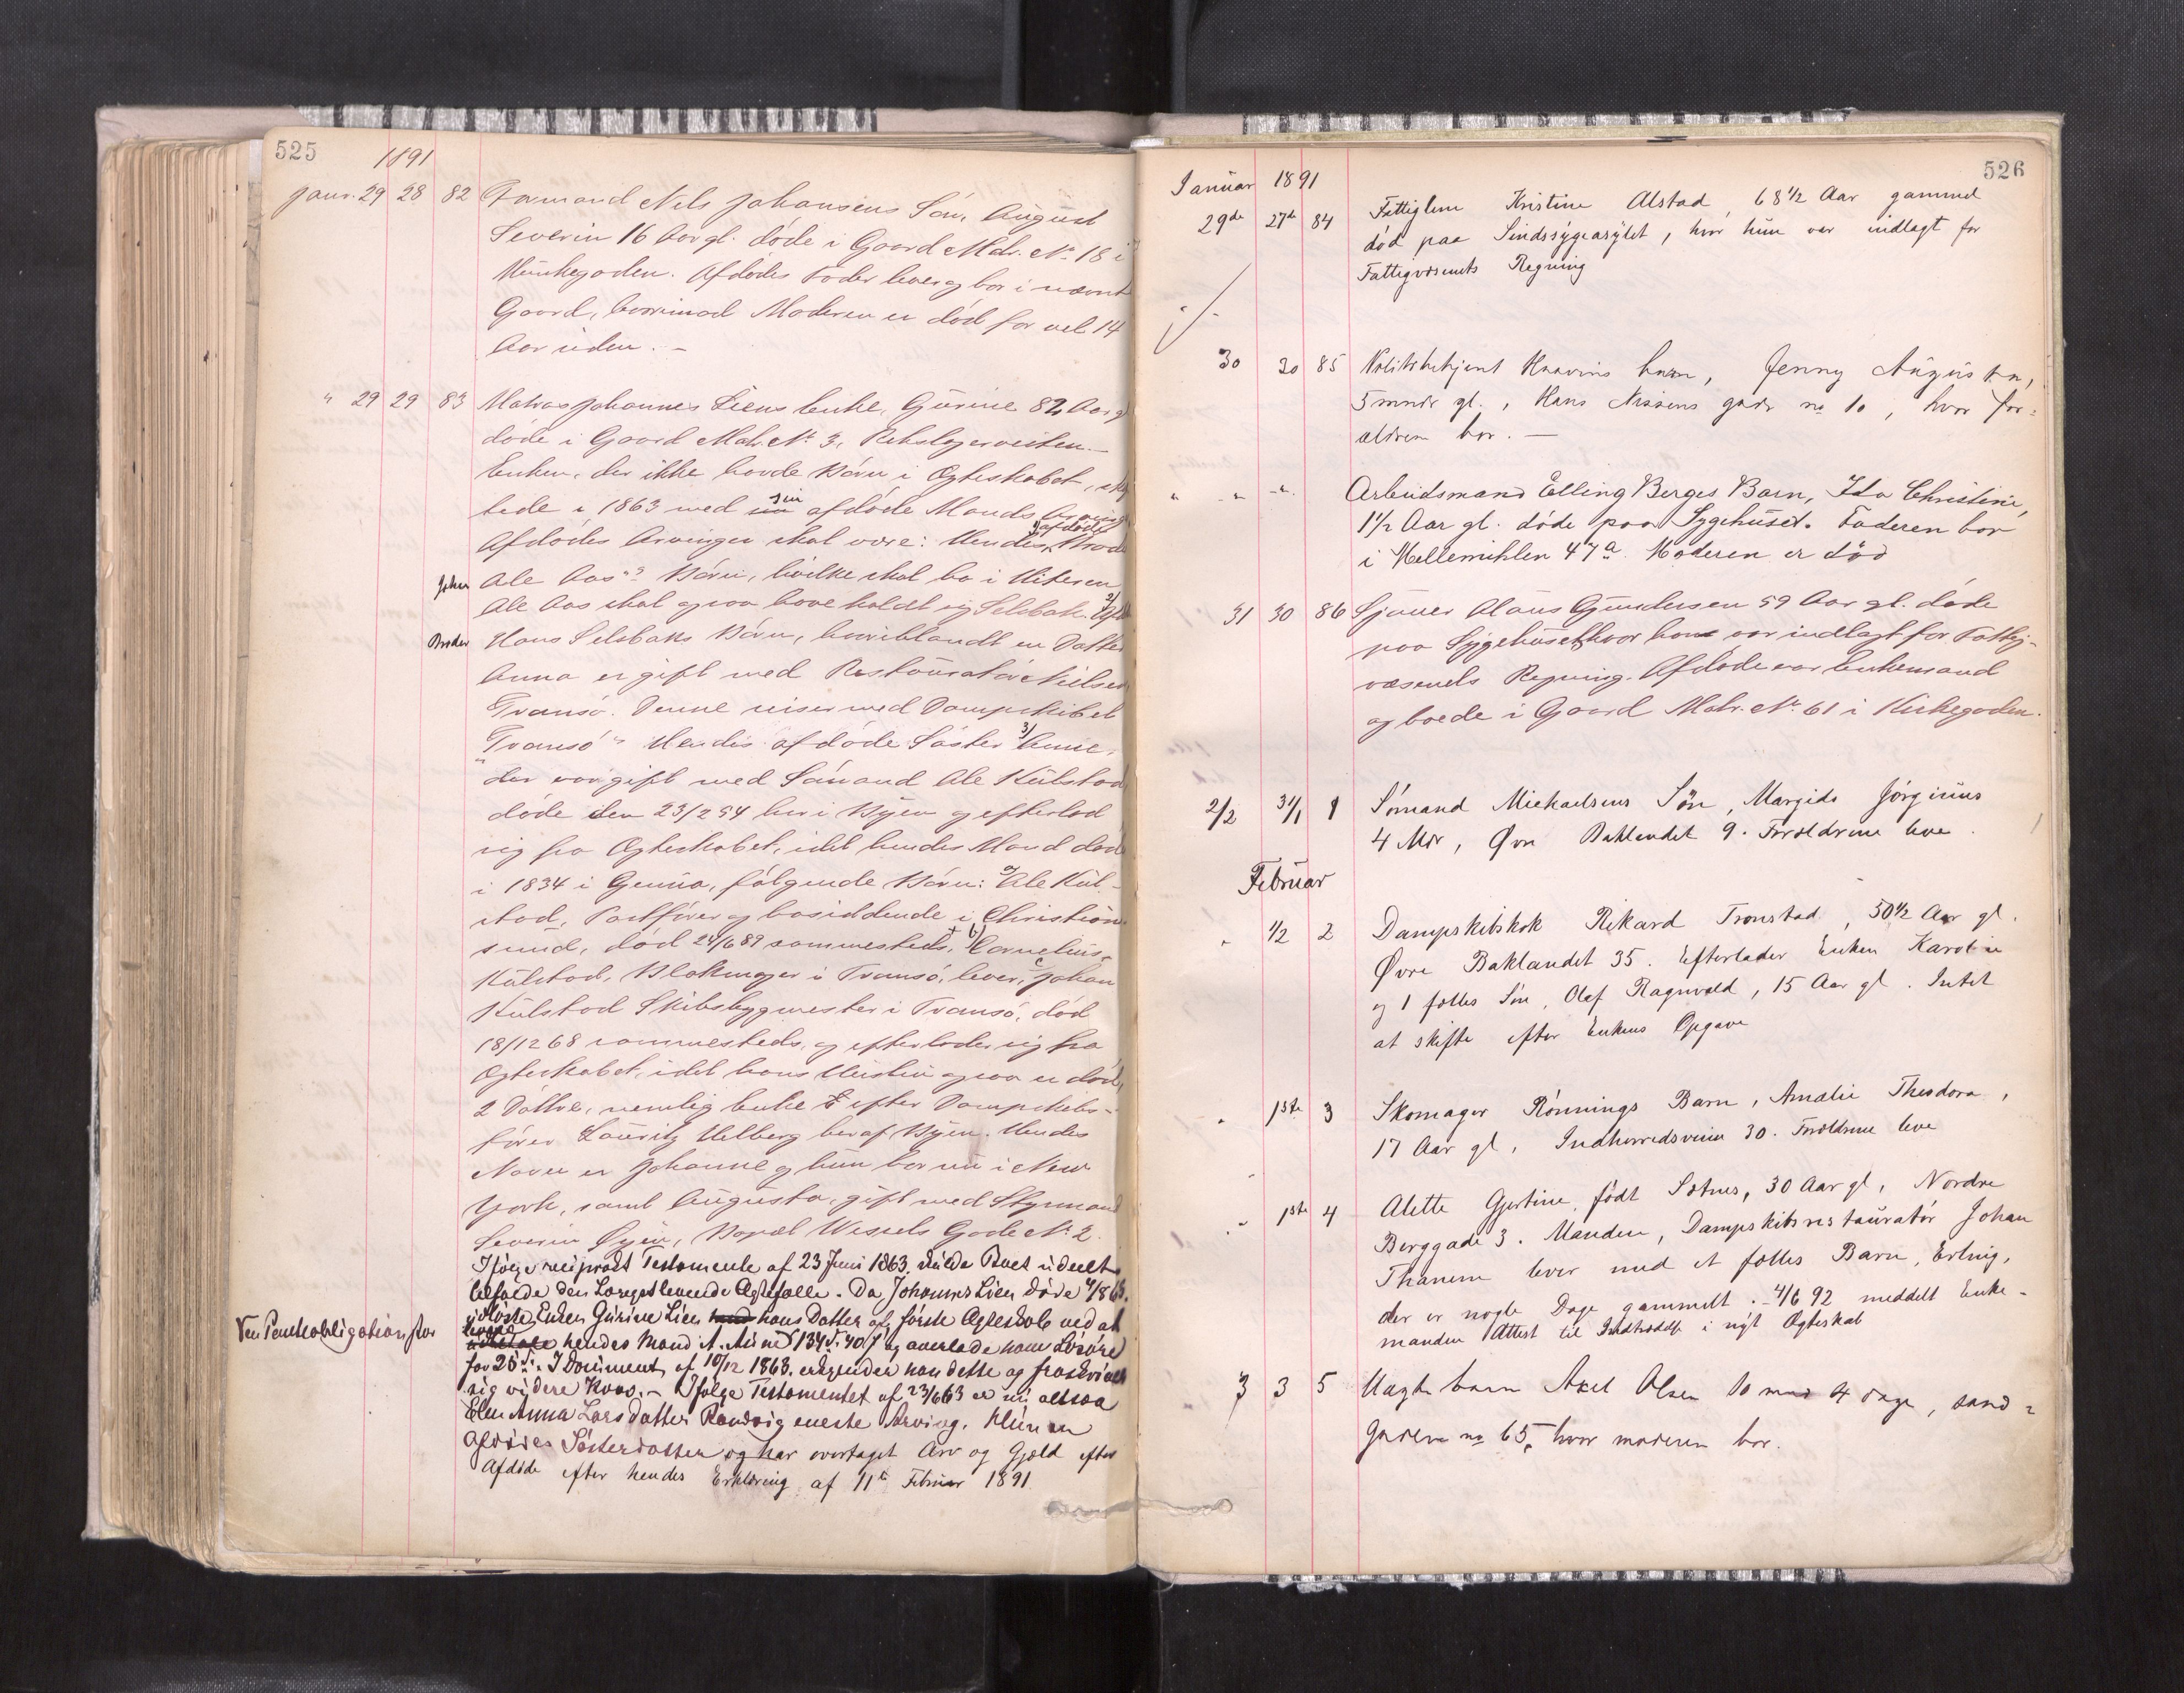 525
1891
Janr. 29 28 82 Formand Nils Johansens Søn, August
Severin 16 Aar gl. døde i Gaard Matr. No 18 i
Munkegaden. Afdødes Fader lever og bor i nævnte
Gaard, hvorimod Moderen er død for vel 14
Aar siden. –
" 29 29 83 Matros Johannes Liens Enke, Gurine 82 Aar gl
døde i Gaard Matr. No 3, Rebslagerveiten. –
Enken, der ikke havde Børn i Ægteskabet, skif
tede i 1863 med sin afdøde Mands Arving
Afdødes Arvinger skal være: Hendes 1) afdøde Broder
John Ole Aas's Børn, hvilke skal bo i Hiteren
Ole Aas skal ogsaa have kaldt sig Selsbak. 2)
Broder Hans Selsbaks Børn, hvoriblandt en Datter
Anna er gift med Restauratør Nielsen
Tromsø. Denne reiser med Dampskibet
"Tromsø". Hendes afdøde Søster 3) Anne,
der var gift med Sømand Ole Kulstad
døde den 23/2 54 her i Byen og efterlod
sig fra Ægteskabet, idet hendes Mand døde
i 1834 i Genua, følgende Børn: a) Ole Kul-
stad, Partfører og bosiddende i Christian
sund, død 24/6 89 sammesteds, b) Cornelius
Kulstad, Blokmager i Tromsø, lever, c Johan
Kulstad Skibsbygmester i Tromsø, død
18/12 68 sammesteds, og efterlader sig fra
Ægteskabet, idet hans Hustru ogsaa er død,
2 Døttre, nemlig Enke efter Dampskibs-
fører Lauritz Helberg her af Byen. Hendes
Navn er Johanne og hun bor nu i New
York, samt Augusta, gift med Styrmand
Severin Øyen, Bopæl Wessels Gade No 2.
Ifølge reciprost Testamente af 23 Juni 1863. skulde Boet udeelt
tilfalde den Længstlevende Ægtefælle. Da Johannes Lien døde 4/8 63.
Enken Gurine Lien hans Datter af første Ægteskab ved at
Ven Panteobligation stor hendes Mand A. 134 og overlade ham Løsøre
for 25 . I Document af 10/12 1863. erkjender han dette og fraskriver
sig videre Krav. – Ifølge Testamentet af 23/6 63 er nu altsaa
Elen Anna Larsdatter Randvig eneste Arving. Hun er
Afdødes Søsterdatter og har overtaget Arv og Gjæld efter
Afdøde efter hendes Erklæring af 11te Februar 1891
526
Januar 1891
29de 27de 84 Fattiglem Kristine Alstad, 68½ Aar gammel
død paa Sindssygeasylet, hvor hun var indlagt for
Fattigvæsenets Regning
30 30 85 Politibetjent Haavins barn, Jenny Augusta,
5 mndr gl., Hans Nissens gade no 10, hvor for=
ældrene bor. –
" " " Arbeidsmand Elling Berges Barn, Ida Christine,
1½ Aar gl. døde paa Sygehuset. Faderen bor
i Mellemihlen 47a. Moderen er død
31 30 86 Sjauer Olaus Gundersen 59 Aar gl. døde
paa Sygehuset, hvor han var indlagt for Fattig-
væsenets Regning. Afdøde var Enkemand
og boede i Gaard Matr. No 61 i Kirkegaden.
2/2 31/1 1 Sømand Michaelsens Søn, Margido Jørginius
4 Mdr, Øvre Baklandet 9. Forældrene leve.
Februar
" 1/2 2 Dampskibskok Rikard Tronstad, 50½ Aar gl.
Øvre Baklandet 35. Efterlader Enken Karoline
og 1 fælles Søn, Olaf Ragnvald, 15 Aar gl. Intet
at skifte efter Enkens Opgave
" 1ste 3 Skomager Rønnings Barn, Amalie Theodora,
17 Aar gl, Indherredsveien 30. Forældrene leve
" 1ste 4 Alette Gjertine, født Sætnes, 30 Aar gl, Nordre
Berggade 3. Manden, Dampskibsrestauratør Johan
Thanem lever med et fælles Barn, Erling,
der er nogle Dage gammelt. – 4/6 92 meddelt Enke-
manden Attest til Indtrædelse i nyt Ægteskab
3 3 5 Uægte barn Axel Olsen 10 mnd 4 dage, sand=
gaden no 65, hvor moderen bor.